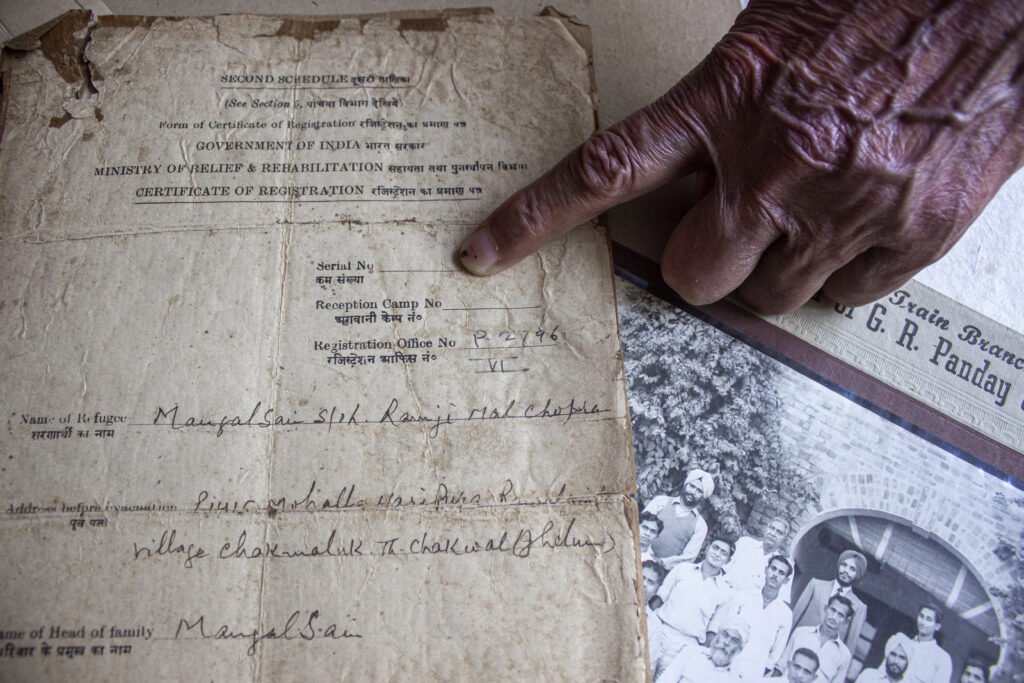 SECOND SCHEDULE दूसरी तालिका
(See Section 5, पांचवा विभाग देखिये)
Form of Certificate of Registration रजिस्ट्रेशन का प्रमाण पत्र
GOVERNMENT OF INDIA भारत सरकार
MINISTRY OF RELIEF & REHABILITATION सहायता तथा पुनर्वापन विभाग
CERTIFICATE OF REGISTRATION रजिस्ट्रेशन का प्रमाण पत्र
Serial No
क्रम संख्या
Reception Camp No
अगवानी केम्प नं०
Registration Office No P. 2796
रजिस्ट्रेशन आफिस नं० VI
Name of Refugee MangalSain S/oh. Ramji Mal Chopra
शरणार्थी का नाम
Address before evacuation Mohalla Haripura
पूर्व पता
village Chakmaluk Th. Chakwal (Jhelum)
ame of Head of family MangalSain
रिवार के प्रमुख का नाम
Train Branc
of G. R. Panday